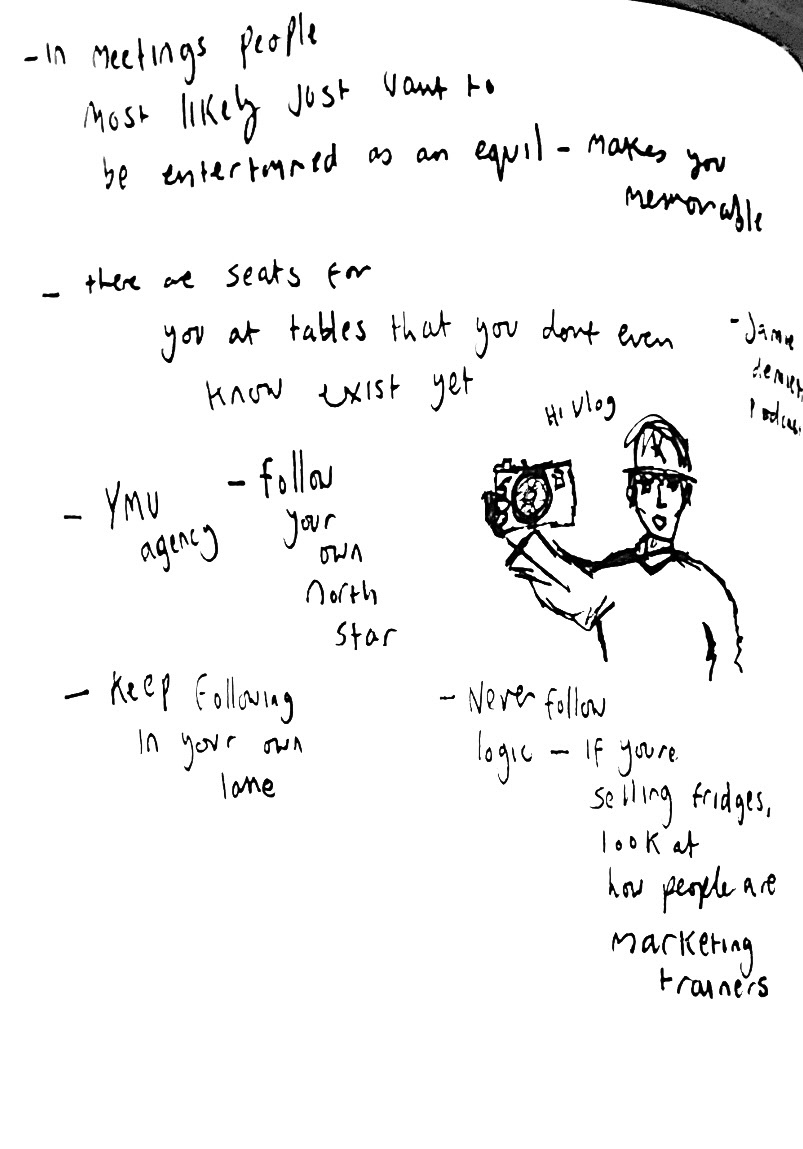 - In meetings people
most likely just want to
be entertained as an equil - makes you
memorable
- there are seats for
you at tables that you dont even
know exist yet
- Jamie
Podcas
Hi Vlog
- YMU
agency
- follow
your
own
north
star
- Keep following
in your own
lane
- Never follow
logic - If youre
selling fridges,
look at
how people are
marketing
trainers